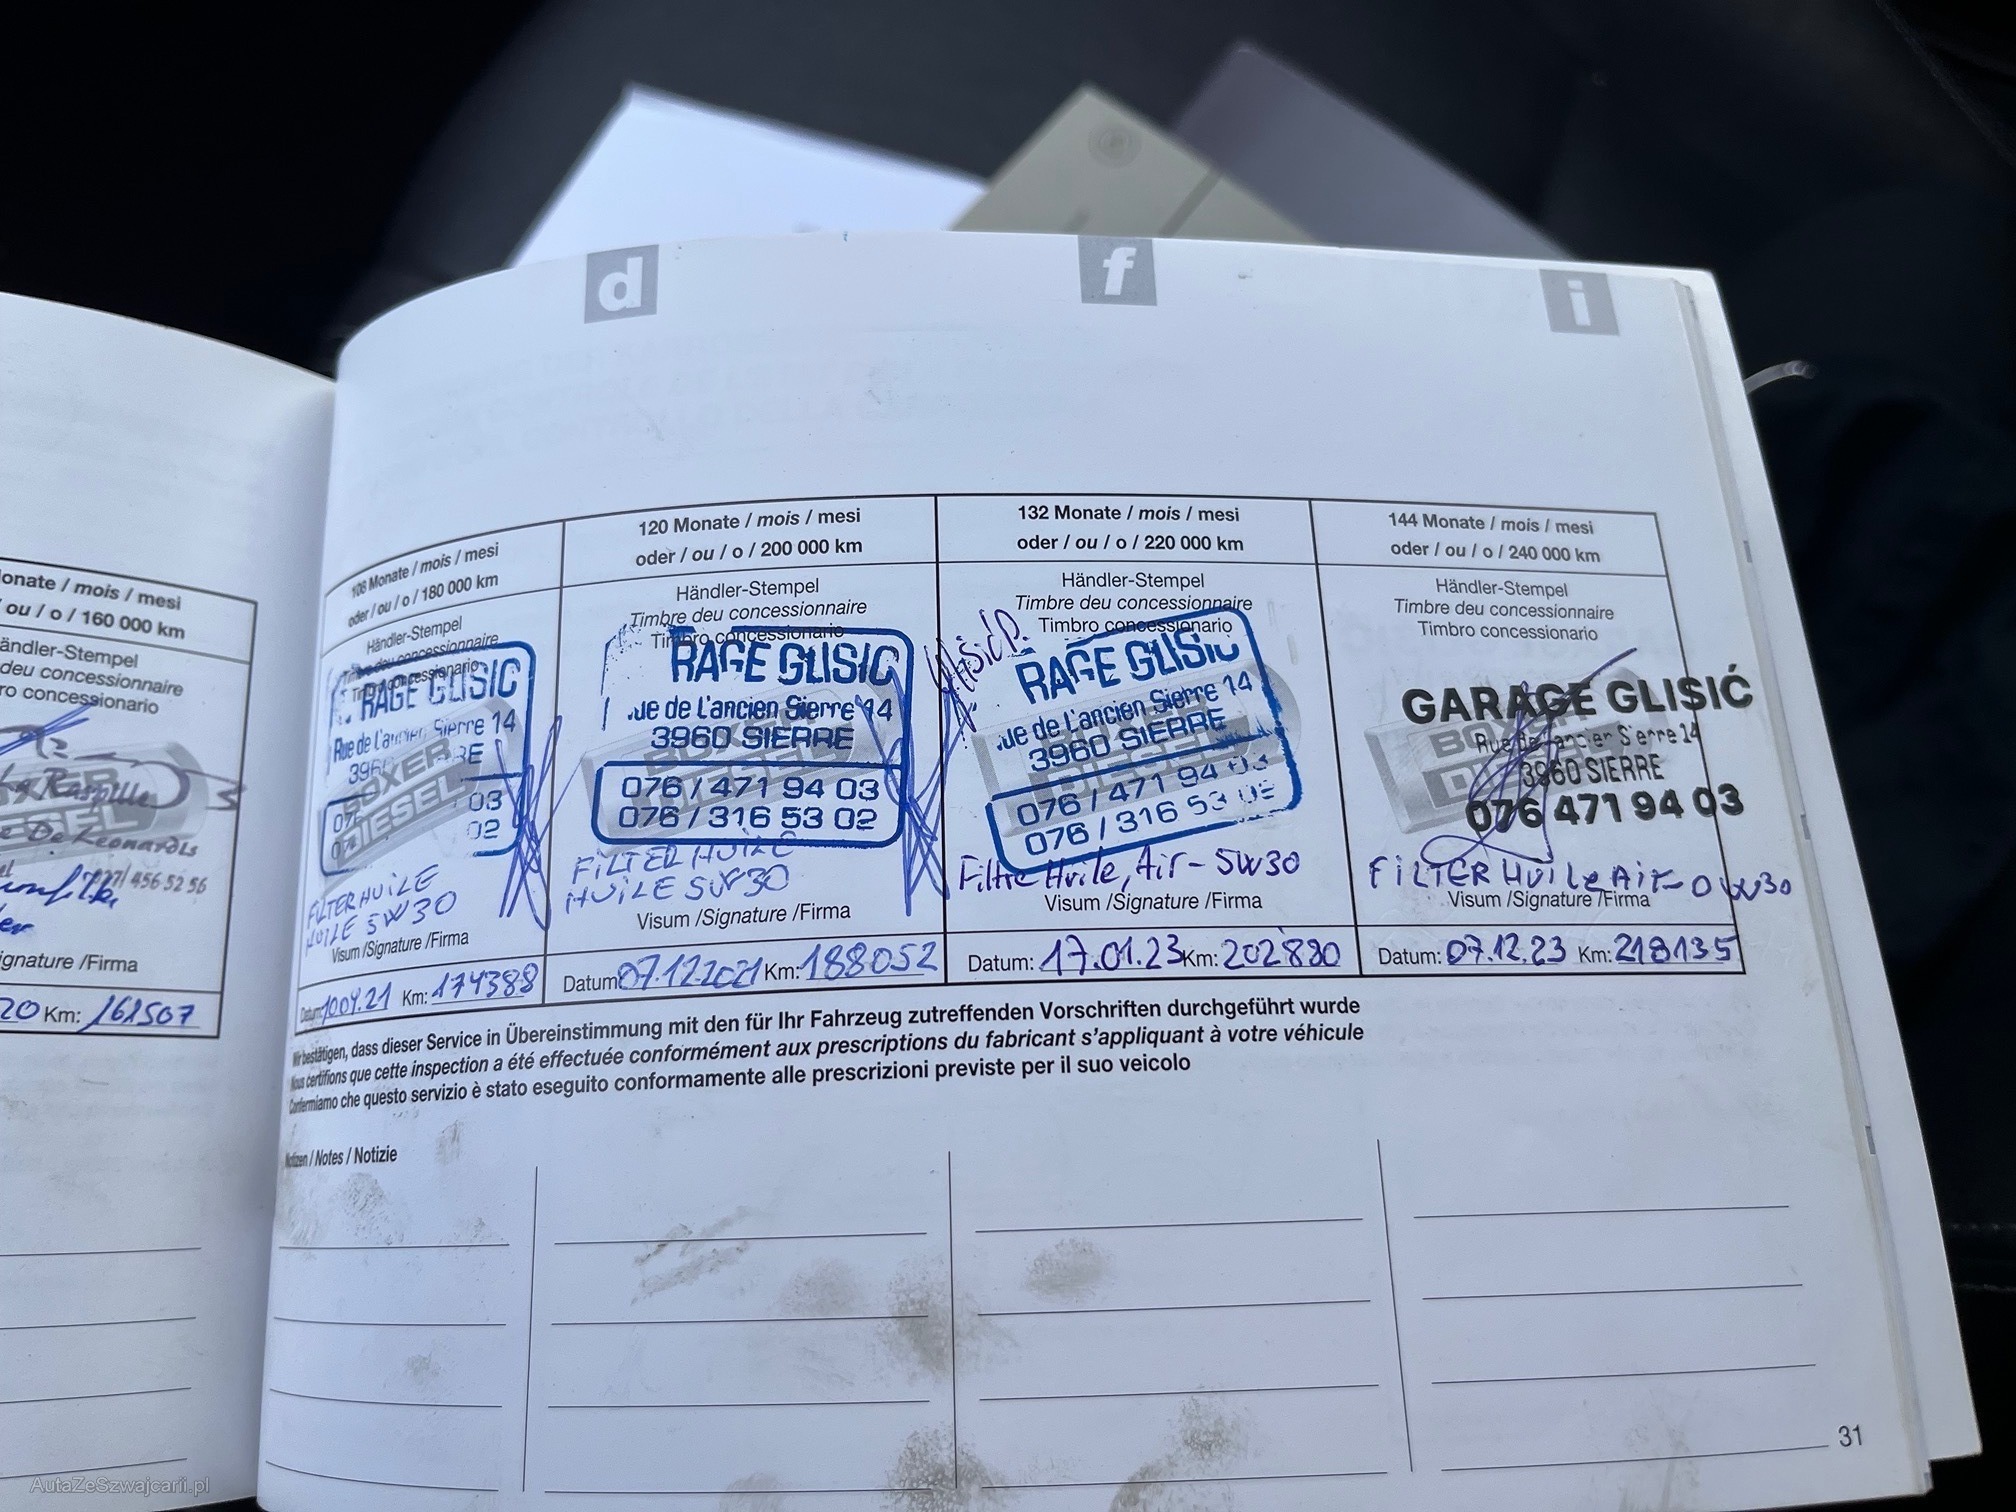 d
f
i
onate / mois / mesi
ou / o / 160 000 km
ändler-Stempel
deu concessionnaire
ro concessionario
La Raspille
De Leonardis
456 52 56
ignature /Firma
20 Km: 161507
108 Monate / mois / mesi
oder / ou / o / 180 000 km
Händler-Stempel
Timbre deu concessionnaire
Timbro concessionario
RAGE GLISIC
Rue de l'ancien Sierre 14
3960 RE
076 03
076 02
FILTER HUILE
HUILE 5W30
Visum /Signature /Firma
Datum: 10.04.21 Km: 174388
120 Monate / mois / mesi
oder / ou / o / 200 000 km
Händler-Stempel
Timbre deu concessionnaire
Timbro concessionario
RAGE GLISIC
ue de l'ancien Sierre 14
3960 SIERRE
076 / 471 94 03
076 / 316 53 02
FILTER HUILE
HUILE 5W30
Visum /Signature /Firma
Datum: 07.12.2021 Km: 188052
132 Monate / mois / mesi
oder / ou / o / 220 000 km
Händler-Stempel
Timbre deu concessionnaire
Timbro concessionario
Glisic P.
RAGE GLISIC
ue de l'ancien Sierre 14
3960 SIERRE
076 / 471 94 03
076 / 316 53 02
Filtre Huile, Air - 5W30
Visum /Signature /Firma
Datum: 17.01.23 Km: 202880
144 Monate / mois / mesi
oder / ou / o / 240 000 km
Händler-Stempel
Timbre deu concessionnaire
Timbro concessionario
GARAGE GLISIĆ
Rue de l'ancien Sierre 14
3960 SIERRE
076 471 94 03
FILTER HUILE AIR - 0W30
Visum /Signature /Firma
Datum: 07.12.23 Km: 218135
BOXER
DIESEL
Wir bestätigen, dass dieser Service in Übereinstimmung mit den für Ihr Fahrzeug zutreffenden Vorschriften durchgeführt wurde
Nous certifions que cette inspection a été effectuée conformément aux prescriptions du fabricant s'appliquant à votre véhicule
Confermiamo che questo servizio è stato eseguito conformamente alle prescrizioni previste per il suo veicolo
Notizen / Notes / Notizie
31
AutaZeSzwajcarii.pl